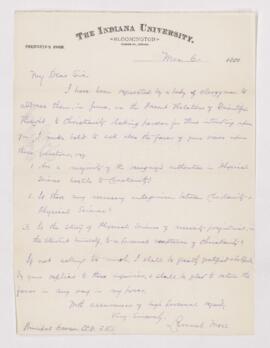 THE INDIANA UNIVERSITY,
BLOOMINGTON
PRESIDENT'S ROOM.
Nov. 6 1800
My Dear Sir:
I have been requested by a body of clergymen to
address them, in June, on the Present Relations of Scientific
Thought to Christianity. Making
I make bold to ask also the favor of your views when
these questions, viz:
1. Are a majority of the recognized authorities in Physical
Science hostile to Christianity?
2. Is there any necessary antagonism between Christianity &
Physical Science?
3. Is the study of Physical Science of necessity prejudicial, in
the student, to a personal of Christianity?
If not asking too much, I shall be greatly gratified
by your replies to these inquiries, & shall be glad to return the
favor in any way in my power.
With assurances of high personal regard,
Very Sincerely,
Lemuel Moss
Principal Dawson